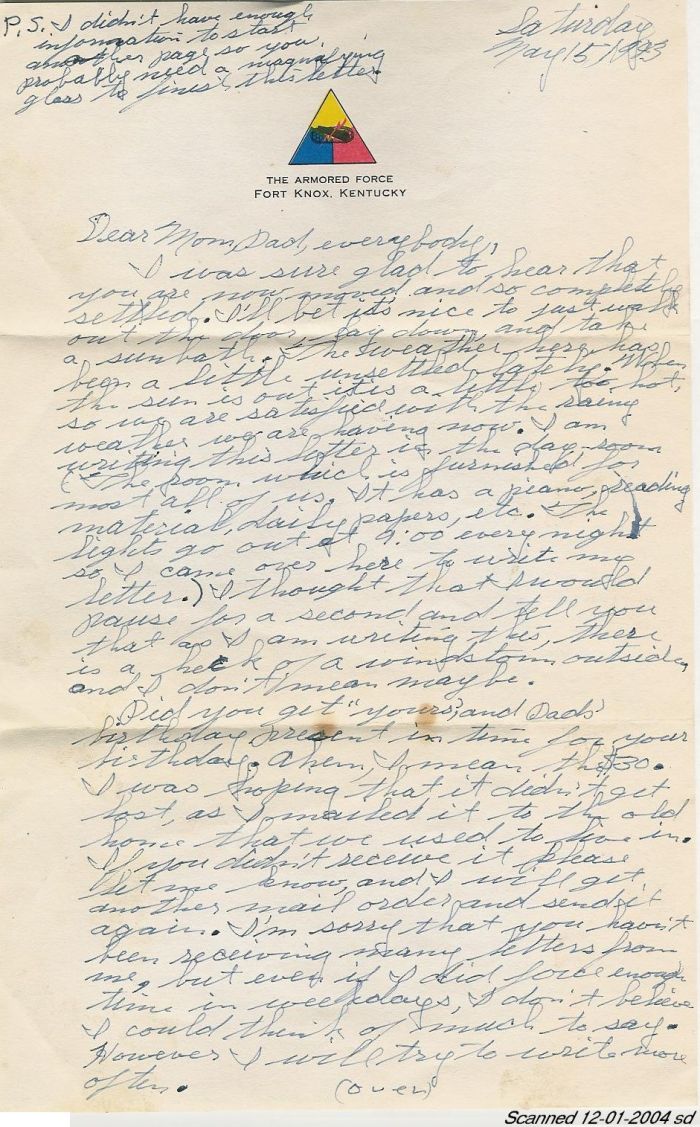 P.S. I didn't have enough
information to start
another page so you
probably need a magnifying
glass to finish this letter.
Saturday
May 15, 1943
THE ARMORED FORCE
FORT KNOX, KENTUCKY
Dear Mom, Dad, everybody,
I was sure glad to hear that
you are now moved and so completely
settled. I'll bet it's nice to just walk
out the door, lay down, and take
a sunbath. The weather here has
been a little unsettled lately. When
the sun is out it is a little too hot,
so we are satisfied with the rainy
weather we are having now. I am
writing this letter in the day-room
(The room which is furnished for
most all of us. It has a piano, reading
material, daily papers, etc. The
lights go out at 9:00 every night
so I came over here to write my
letter.) I thought that I would
pause for a second and tell you
that as I am writing this, there
is a heck of a windstorm outside,
and I don't mean maybe.
Did you get "yours", and Dads'
birthday present in time for your
birthday. Ahem, I mean the $30.
I was hoping that it didn't get
lost, as I mailed it to the old
home that we used to live in.
If you didn't receive it please
let me know, and I will get
another mail order and send it
again. I'm sorry that you havn't
been receiving many letters from
me, but even if I did force enough
time in weekdays, I don't believe
I could think of much to say.
However I will try to write more
often.
(over)
Scanned 12-01-2004 sd